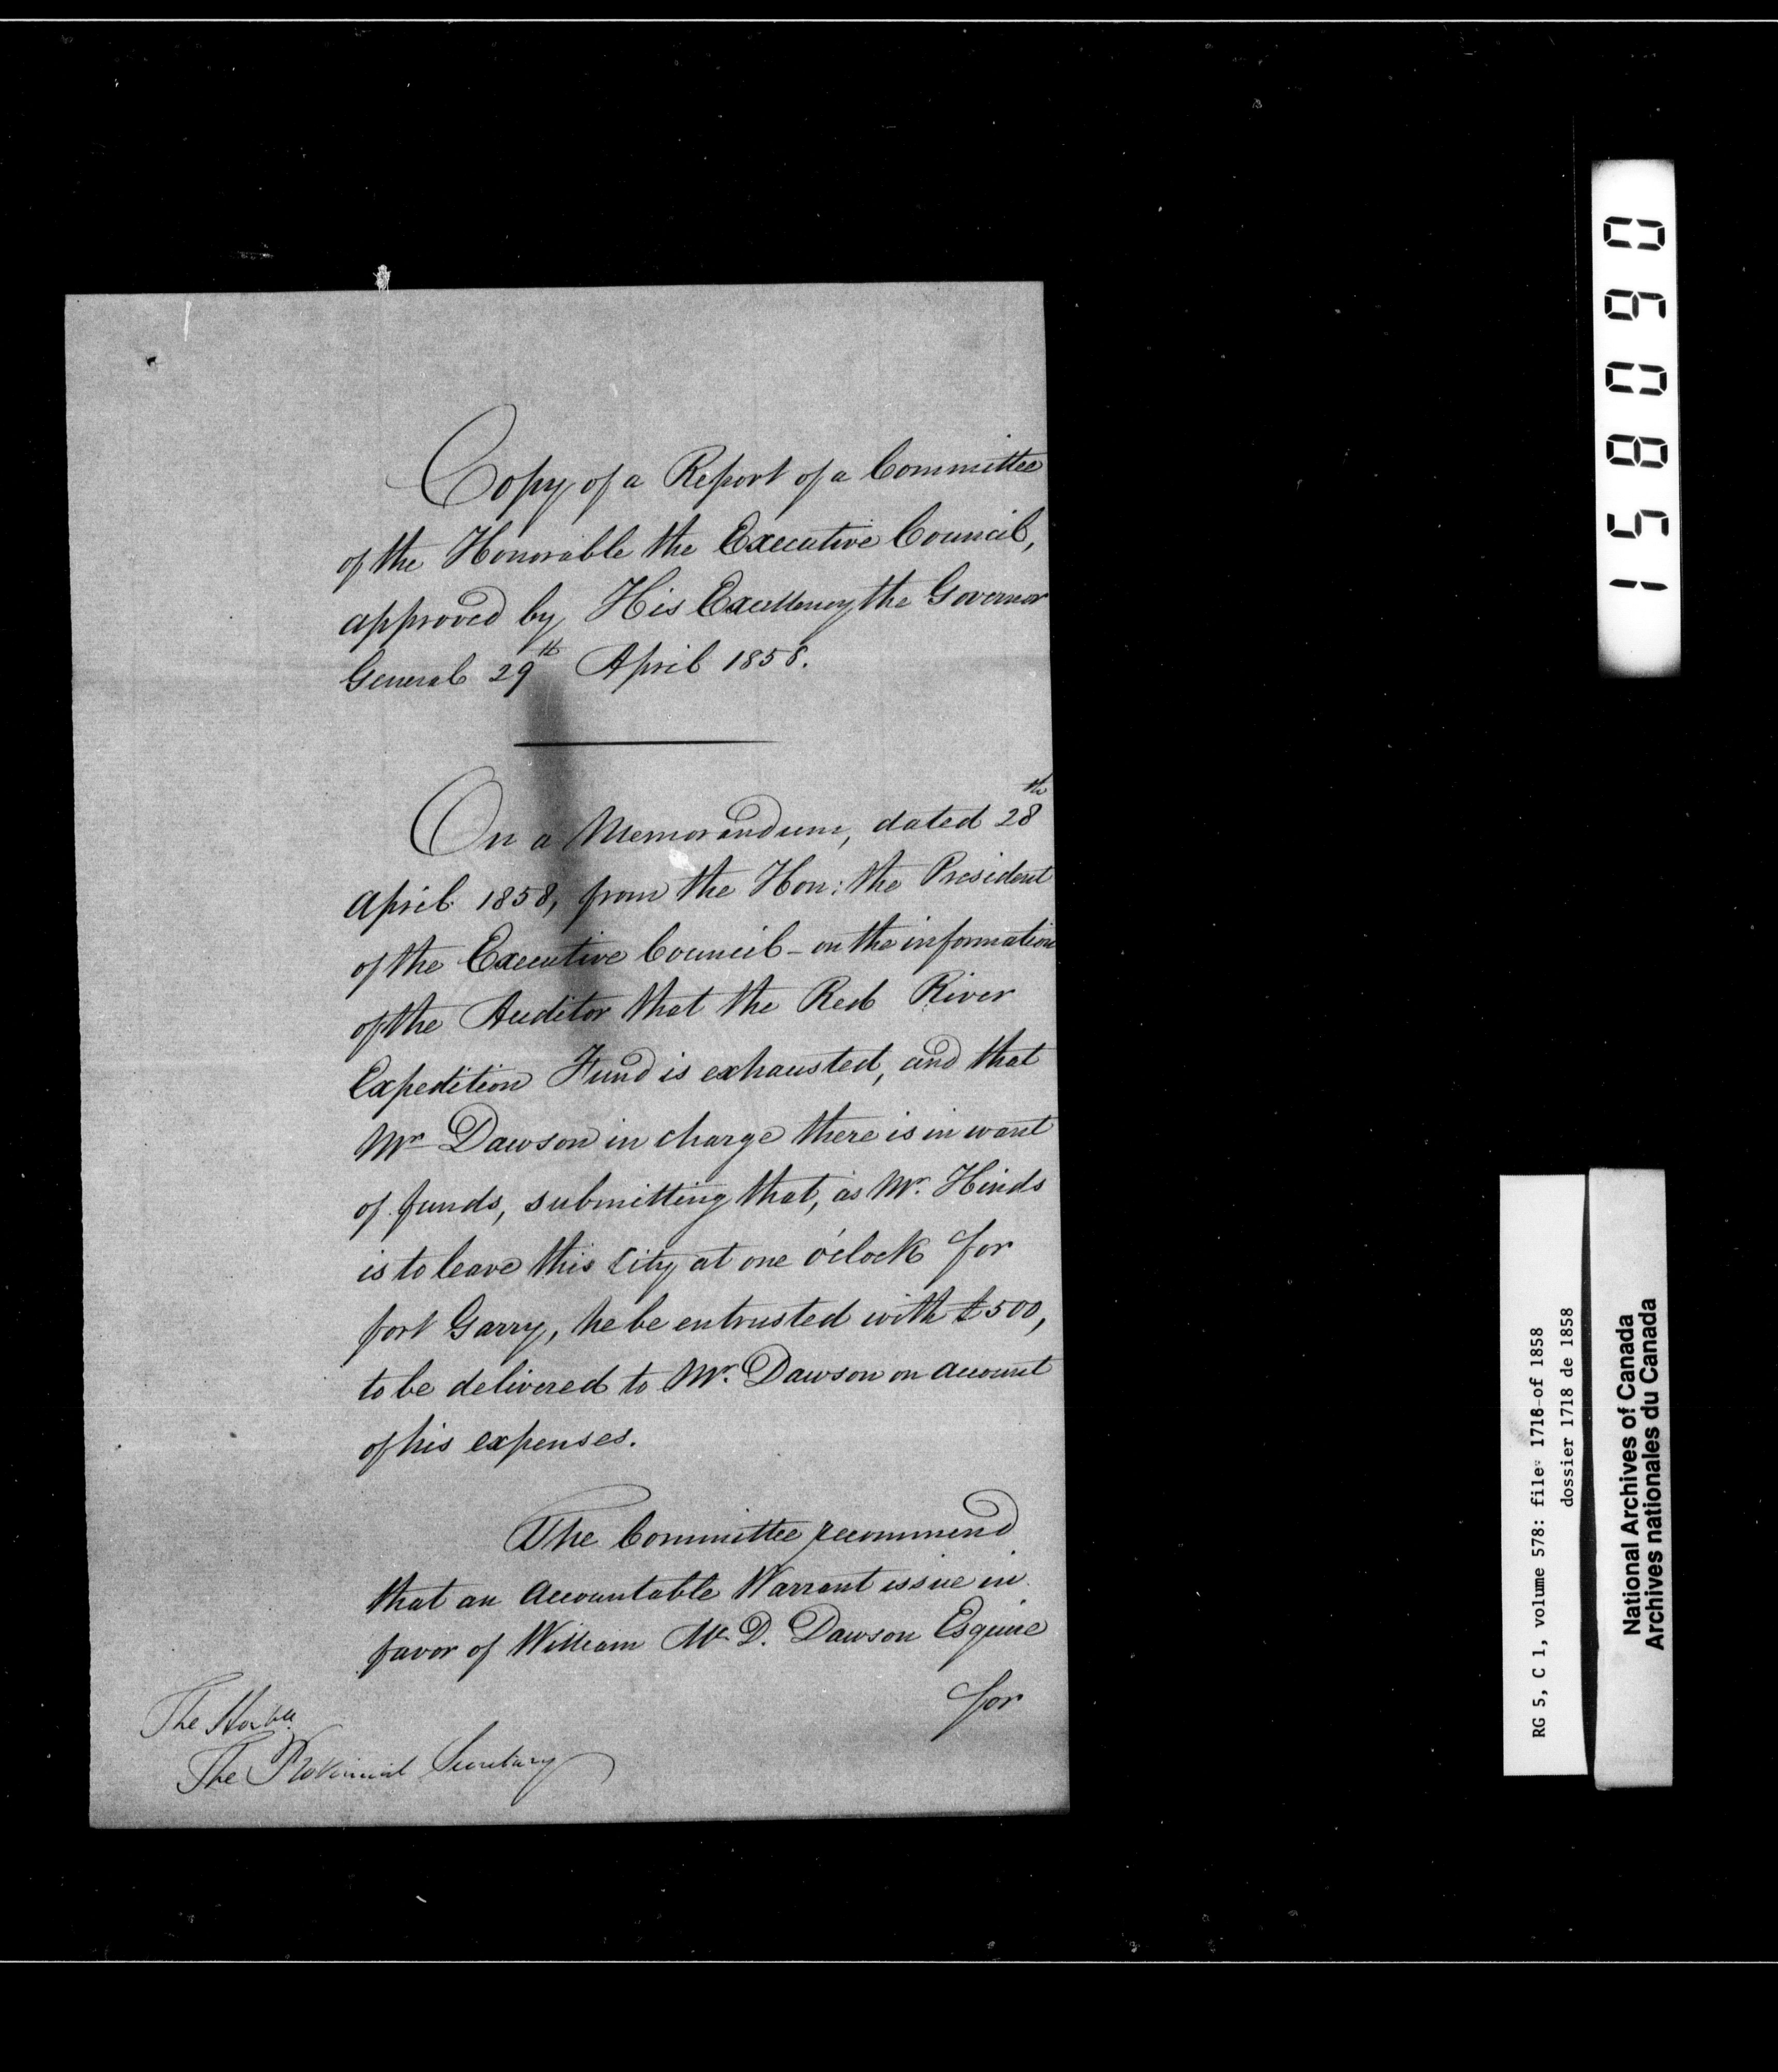 Copy of a Report of a Committee
of the Honorable the Executive Council,
approved by His Excellency the Governor
General 29th April 1858.
On a Memorandum, dated 28th
April 1858, from the Hon: the President
of the Executive Council - on the information
of the Auditor that the Red River
Expedition Fund is exhausted, and that
Mr Dawson in charge there is in want
of funds, submitting that, as Mr. Hinds
is to leave this City at one o'clock for
fort Garry, he be entrusted with £500,
to be delivered to Mr. Dawson on account
of his expenses.
The Committee recommend
that an Accountable Warrant issue in
favor of William Mc D. Dawson Esquire
for
The Honble
The Provincial Secretary
158090
RG 5, C 1, volume 578: file 1718 of 1858
dossier 1718 de 1858
National Archives of Canada
Archives nationales du Canada